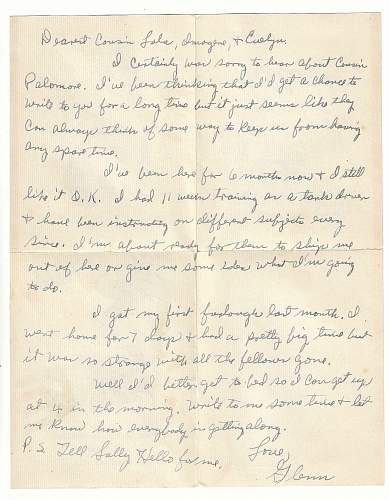 Dearest Cousin Lula, Imogene, & Evelyn.
I certainly was sorry to hear about Cousin
Palomore. I've been thinking that I'd get a chance to
write to you for a long time but it just seems like they
can always think of some way to keep us from having
any spare time.
I've been here for 6 months now & I still
like it O.K. I had 11 weeks training as a tank driver
& have been instructing on different subjects every
since. I'm about ready for them to ship me
out of here or give me some idea what I'm going
to do.
I got my first furlough last month. I
went home for 7 days & had a pretty big time but
it was so strange with all the fellows gone.
Well I'd better get to bed so I can get up
at 4 in the morning. Write to me some time & let
me know how everybody is getting along.
Love,
Glenn
P.S. Tell Sally Hello for me.